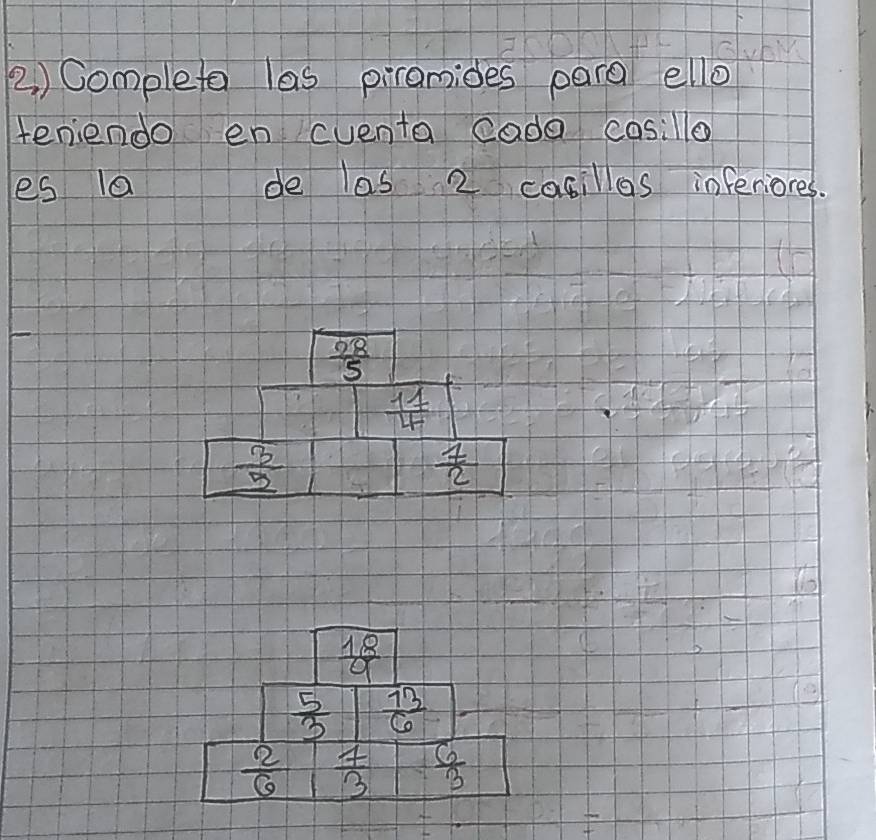 2.) Completa las piramides para ello
teniendo en cuenta cada casilla
es la de las 2 casillas inferiores.
28/5
11/4
3/5 1/2
18/9
5/3 13/6
2/6 1/3 6/3